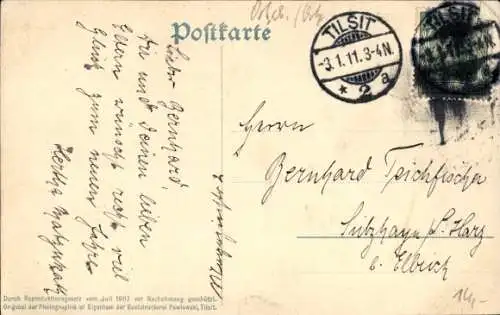 Postkarte
TILSIT
-3.1.11.3-4N.
* 2 a
TILSIT
Lieber Bernhard,
Dir und Deinen lieben
Eltern wünscht recht viel
Glück zum neuen Jahre
Hertha
Herrn
Bernhard Tschfischer
Sülzhayn/S. Harz
b. Ellrich
14,-
Durch Reproduktionsgesetz vom Juli 1907 vor Nachahmung geschützt.
Original der Photographie ist Eigentum der Kunstanstalt Pawlowski, Tilsit.